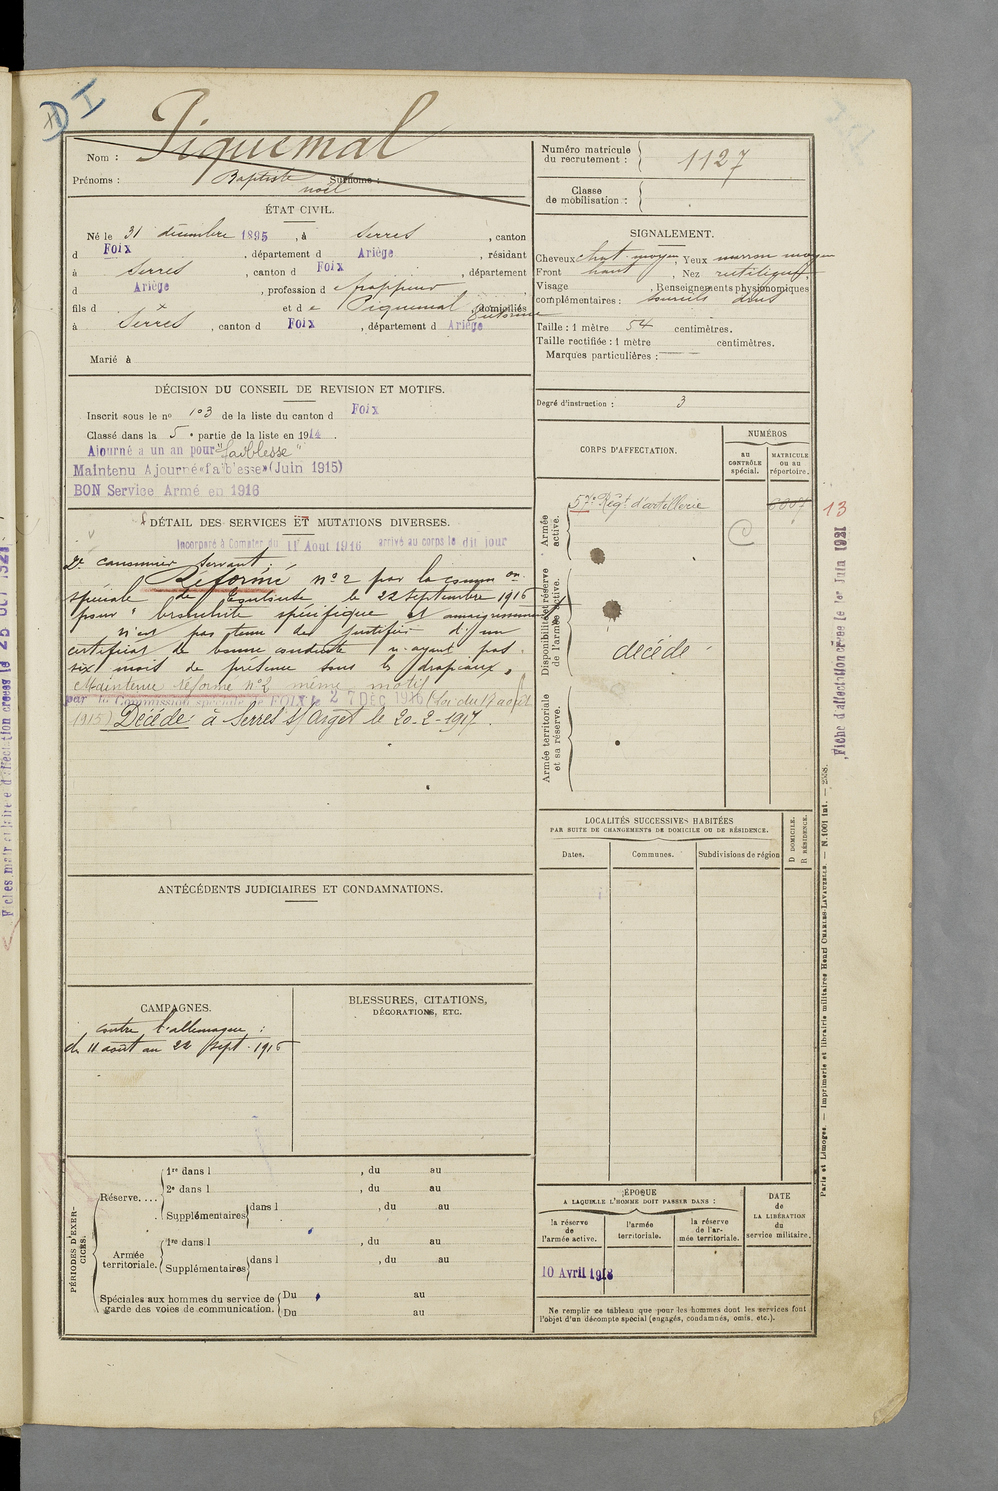 I
Nom : Piquemal
Prénoms : Baptiste noël Surnoms :
ÉTAT CIVIL.
Né le 31 décembre 1895, à Serres, canton
d Foix, département d Ariège, résidant
à Serres, canton d Foix, département
d Ariège, profession de frappeur,
fils d x et de Piquemal, domiciliés
à Serres, canton d Foix, département d Ariège
Marié à
DÉCISION DU CONSEIL DE REVISION ET MOTIFS.
Inscrit sous le no 103 de la liste du canton d Foix
Classé dans la 5e partie de la liste en 1914.
Ajourné a un an pour "faiblesse"
Maintenu Ajourné «faiblesse» (Juin 1915)
BON Service Armé en 1916
DÉTAIL DES SERVICES ET MUTATIONS DIVERSES.
Incorporé à Compter du 11 Aout 1916 arrivé au corps le dit jour
2e canonnier servant.
Réformé no 2 par la comm on
spéciale de Toulouse le 22 septembre 1916
pour "bronchite spécifique et amaigrissement
n'est pas tenu de justifier d'un
certificat de bonne conduite n'ayant pas
six mois de présence sous les drapeaux.
Maintenu réformé no 2 même motif
par la Commission spéciale de FOIX le 27 DEC 1916 (Loi du 17 août
1915) Décédé à Serres s/ Arget le 20-2-1917.
ANTÉCÉDENTS JUDICIAIRES ET CONDAMNATIONS.
CAMPAGNES.
contre l'allemagne :
du 11 août au 22 Sept. 1916
BLESSURES, CITATIONS,
DÉCORATIONS, ETC.
PÉRIODES D'EXERCICES.
Réserve....
1re dans l , du au
2e dans l , du au
Supplémentaires dans l , du au
Armée territoriale.
1re dans l , du au
Supplémentaires dans l , du au
Spéciales aux hommes du service de garde des voies de communication.
Du au
Du au
Numéro matricule du recrutement : 1127
Classe de mobilisation :
SIGNALEMENT.
Cheveux chat. moyen, Yeux marron moyen
Front haut, Nez rectiligne
Visage , Renseignements physionomiques
complémentaires : sourcils
Taille : 1 mètre 54 centimètres.
Taille rectifiée : 1 mètre centimètres.
Marques particulières :
Degré d'instruction : 3
CORPS D'AFFECTATION.
NUMÉROS
au CONTRÔLE spécial.
MATRICULE ou au répertoire.
Armée active.
57e Régt d'artillerie
C
13
Disponibilité et réserve de l'armée active.
décédé
Armée territoriale et sa réserve.
LOCALITÉS SUCCESSIVES HABITÉES
PAR SUITE DE CHANGEMENTS DE DOMICILE OU DE RÉSIDENCE.
Dates.
Communes.
Subdivisions de région
D DOMICILE.
R RÉSIDENCE.
ÉPOQUE
A LAQUELLE L'HOMME DOIT PASSER DANS :
la réserve de l'armée active.
l'armée territoriale.
la réserve de l'armée territoriale.
DATE de LA LIBÉRATION du service militaire.
10 Avril 1918
Ne remplir ce tableau que pour les hommes dont les services font
l'objet d'un décompte spécial (engagés, condamnés, omis, etc.).
Fiche d'affectation créée le 1er Juin 1921
Paris et Limoges. — Imprimerie et librairie militaires Henri CHARLES-LAVAUZELLE. — N. 1001 int.